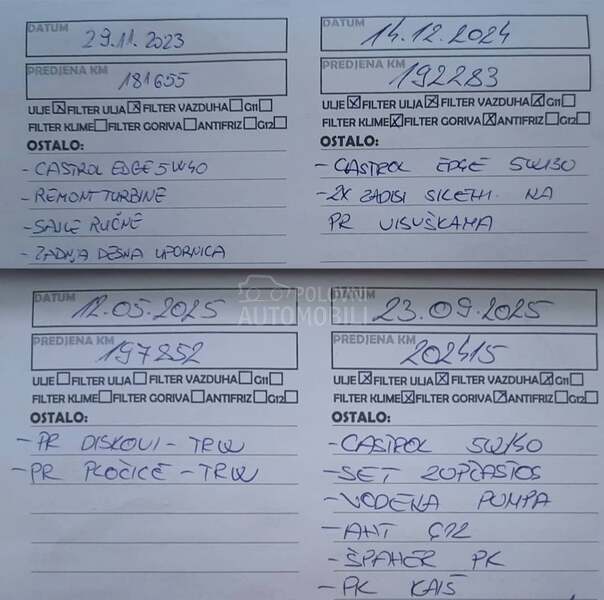 DATUM
29.11.2023
PREDJENA KM
181655
ULJE FILTER ULJA FILTER VAZDUHA G11
FILTER KLIME FILTER GORIVA ANTIFRIZ G12
OSTALO:
- CASTROL EDGE 5W40
- REMONT TURBINE
- SAJLE RUČNE
- ZADNJA DESNA UPORNICA
DATUM
14.12.2024
PREDJENA KM
192283
ULJE FILTER ULJA FILTER VAZDUHA G11
FILTER KLIME FILTER GORIVA ANTIFRIZ G12
OSTALO:
- CASTROL EDGE 5W30
- 2X ZADISI NA
PR VISUŠKAMA
DATUM
12.05.2025
PREDJENA KM
197852
ULJE FILTER ULJA FILTER VAZDUHA G11
FILTER KLIME FILTER GORIVA ANTIFRIZ G12
OSTALO:
- PR DISKOVI - TRW
- PR PLOČICE - TRW
POLOVNI
AUTOMOBILI
DATUM
23.09.2025
PREDJENA KM
202415
ULJE FILTER ULJA FILTER VAZDUHA G11
FILTER KLIME FILTER GORIVA ANTIFRIZ G12
OSTALO:
- CASTROL
- SET ZUPČASTOG
- VODENA PUMPA
- ANT G12
- ŠPANER PK
- PK KAIŠ